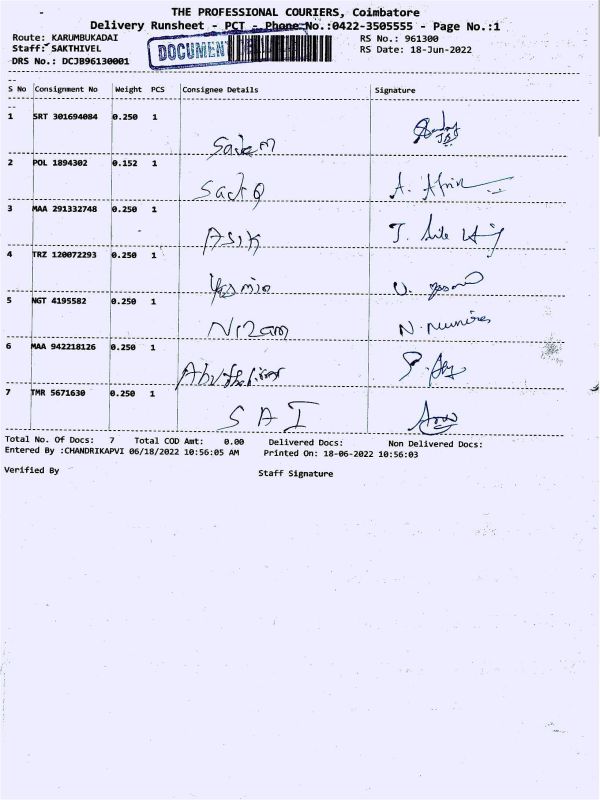 THE PROFESSIONAL COURIERS, Coimbatore
Delivery Runsheet - PCT - Phone No.:0422-3505555 - Page No.:1
Route: KARUMBUKADAI RS No.: 961300
Staff: SAKTHIVEL RS Date: 18-Jun-2022
DRS No.: DCJB96130001
DOCUMEN
S No Consignment No Weight PCS Consignee Details Signature
1 SRT 301694084 0.250 1
2 POL 1894302 0.152 1
Sadiq A. Afrin
3 MAA 291332748 0.250 1
ASIK
4 TRZ 120072293 0.250 1
Yasmin
5 NGT 4195582 0.250 1
Nizam
6 MAA 942218126 0.250 1
7 TMR 5671630 0.250 1
SAI
Total No. Of Docs: 7 Total COD Amt: 0.00 Delivered Docs: Non Delivered Docs:
Entered By :CHANDRIKAPVI 06/18/2022 10:56:05 AM Printed On: 18-06-2022 10:56:03
Verified By Staff Signature